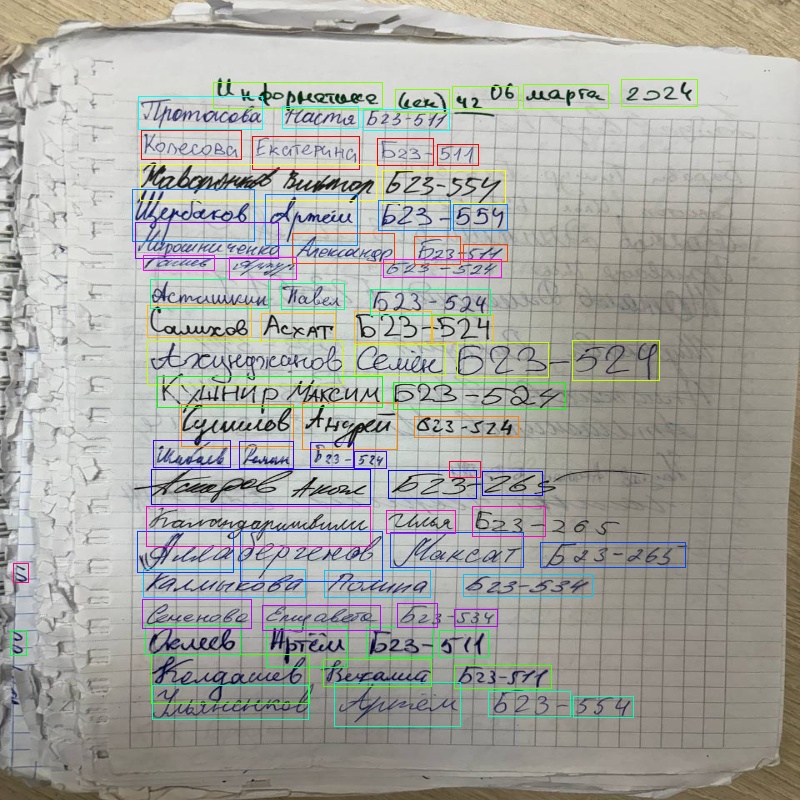 Информатика (лек) 42 06 марта 2024
Протасова Настя Б23-511
Колесова Екатерина Б23-511
Наворонков Виктор Б23-554
Щербаков Артём Б23-554
Мирошниченко Александр Б23-511
Артур Б23-524
Асташкин Павел Б23-524
Салихов Асхат Б23-524
Ахунджанов Семён Б23-524
Кушнир Максим Б23-524
Сушилов Андрей Б23-524
Шибаев Роман Б23-524
Аскаров Акмал Б23-265
Каландаришвили Илья Б23-265
Аллабергенов Максат Б23-265
Калмыкова Полина Б23-534
Семенова Елизавета Б23-534
Оклеев Артём Б23-511
Колдашев Б23-511
Ульяненков Артём Б23-554